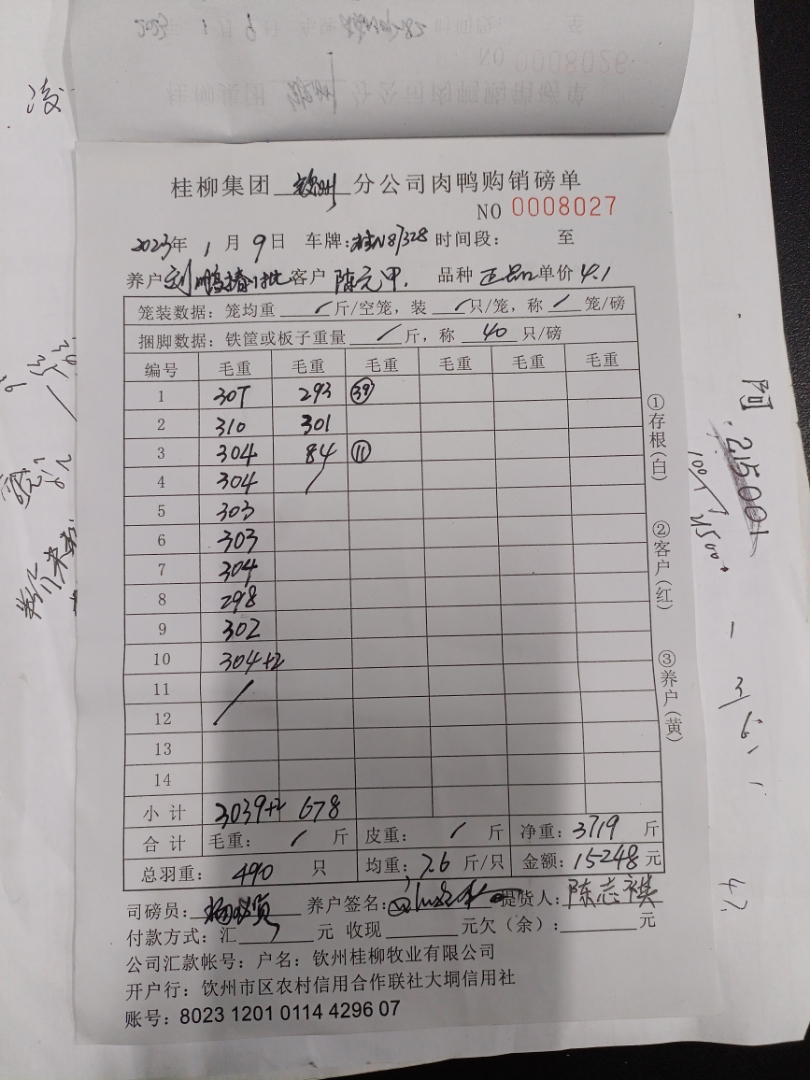 桂柳集团 钦州 分公司肉鸭购销磅单
NO 0008027
2023年 1 月 9 日 车牌:桂N87328 时间段: 至
养户 刘鹏 批 客户 陈元甲. 品种 正品 单价 4.1
笼装数据:笼均重 / 斤/空笼,装 / 只/笼,称 / 笼/磅
捆脚数据:铁筐或板子重量 / 斤,称 40 只/磅
编号 毛重 毛重 毛重 毛重 毛重 毛重
1 307 293 ㊴
2 310 301
3 304 84 ⑪
4 304 /
5 303
6 303
7 304
8 298
9 302
10 304+2
11 /
12
13
14
小计 3039+2 678
合计 毛重: / 斤 皮重: / 斤 净重:3719 斤
总羽重: 490 只 均重:7.6 斤/只 金额:15248元
司磅员: 养户签名: 提货人:陈志
付款方式:汇 元 收现 元欠(余): 元
公司汇款帐号:户名:钦州桂柳牧业有限公司
开户行:钦州市区农村信用合作联社大垌信用社
账号:8023 1201 0114 4296 07
①存根(白)
②客户(红)
③养户(黄)
NO 0008026
阿
215001